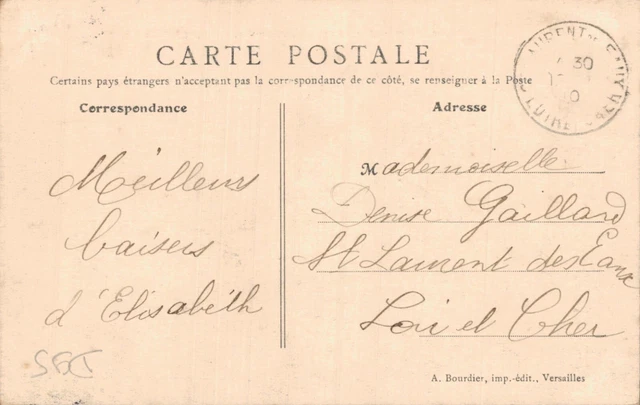 CARTE POSTALE
Certains pays étrangers n'acceptant pas la correspondance de ce côté, se renseigner à la Poste
Correspondance
Adresse
Meilleurs
baisers
d'Elisabeth
Mademoiselle
Denise Gaillard
St Laurent des Eaux
Loir et Cher
A. Bourdier, imp.-édit., Versailles